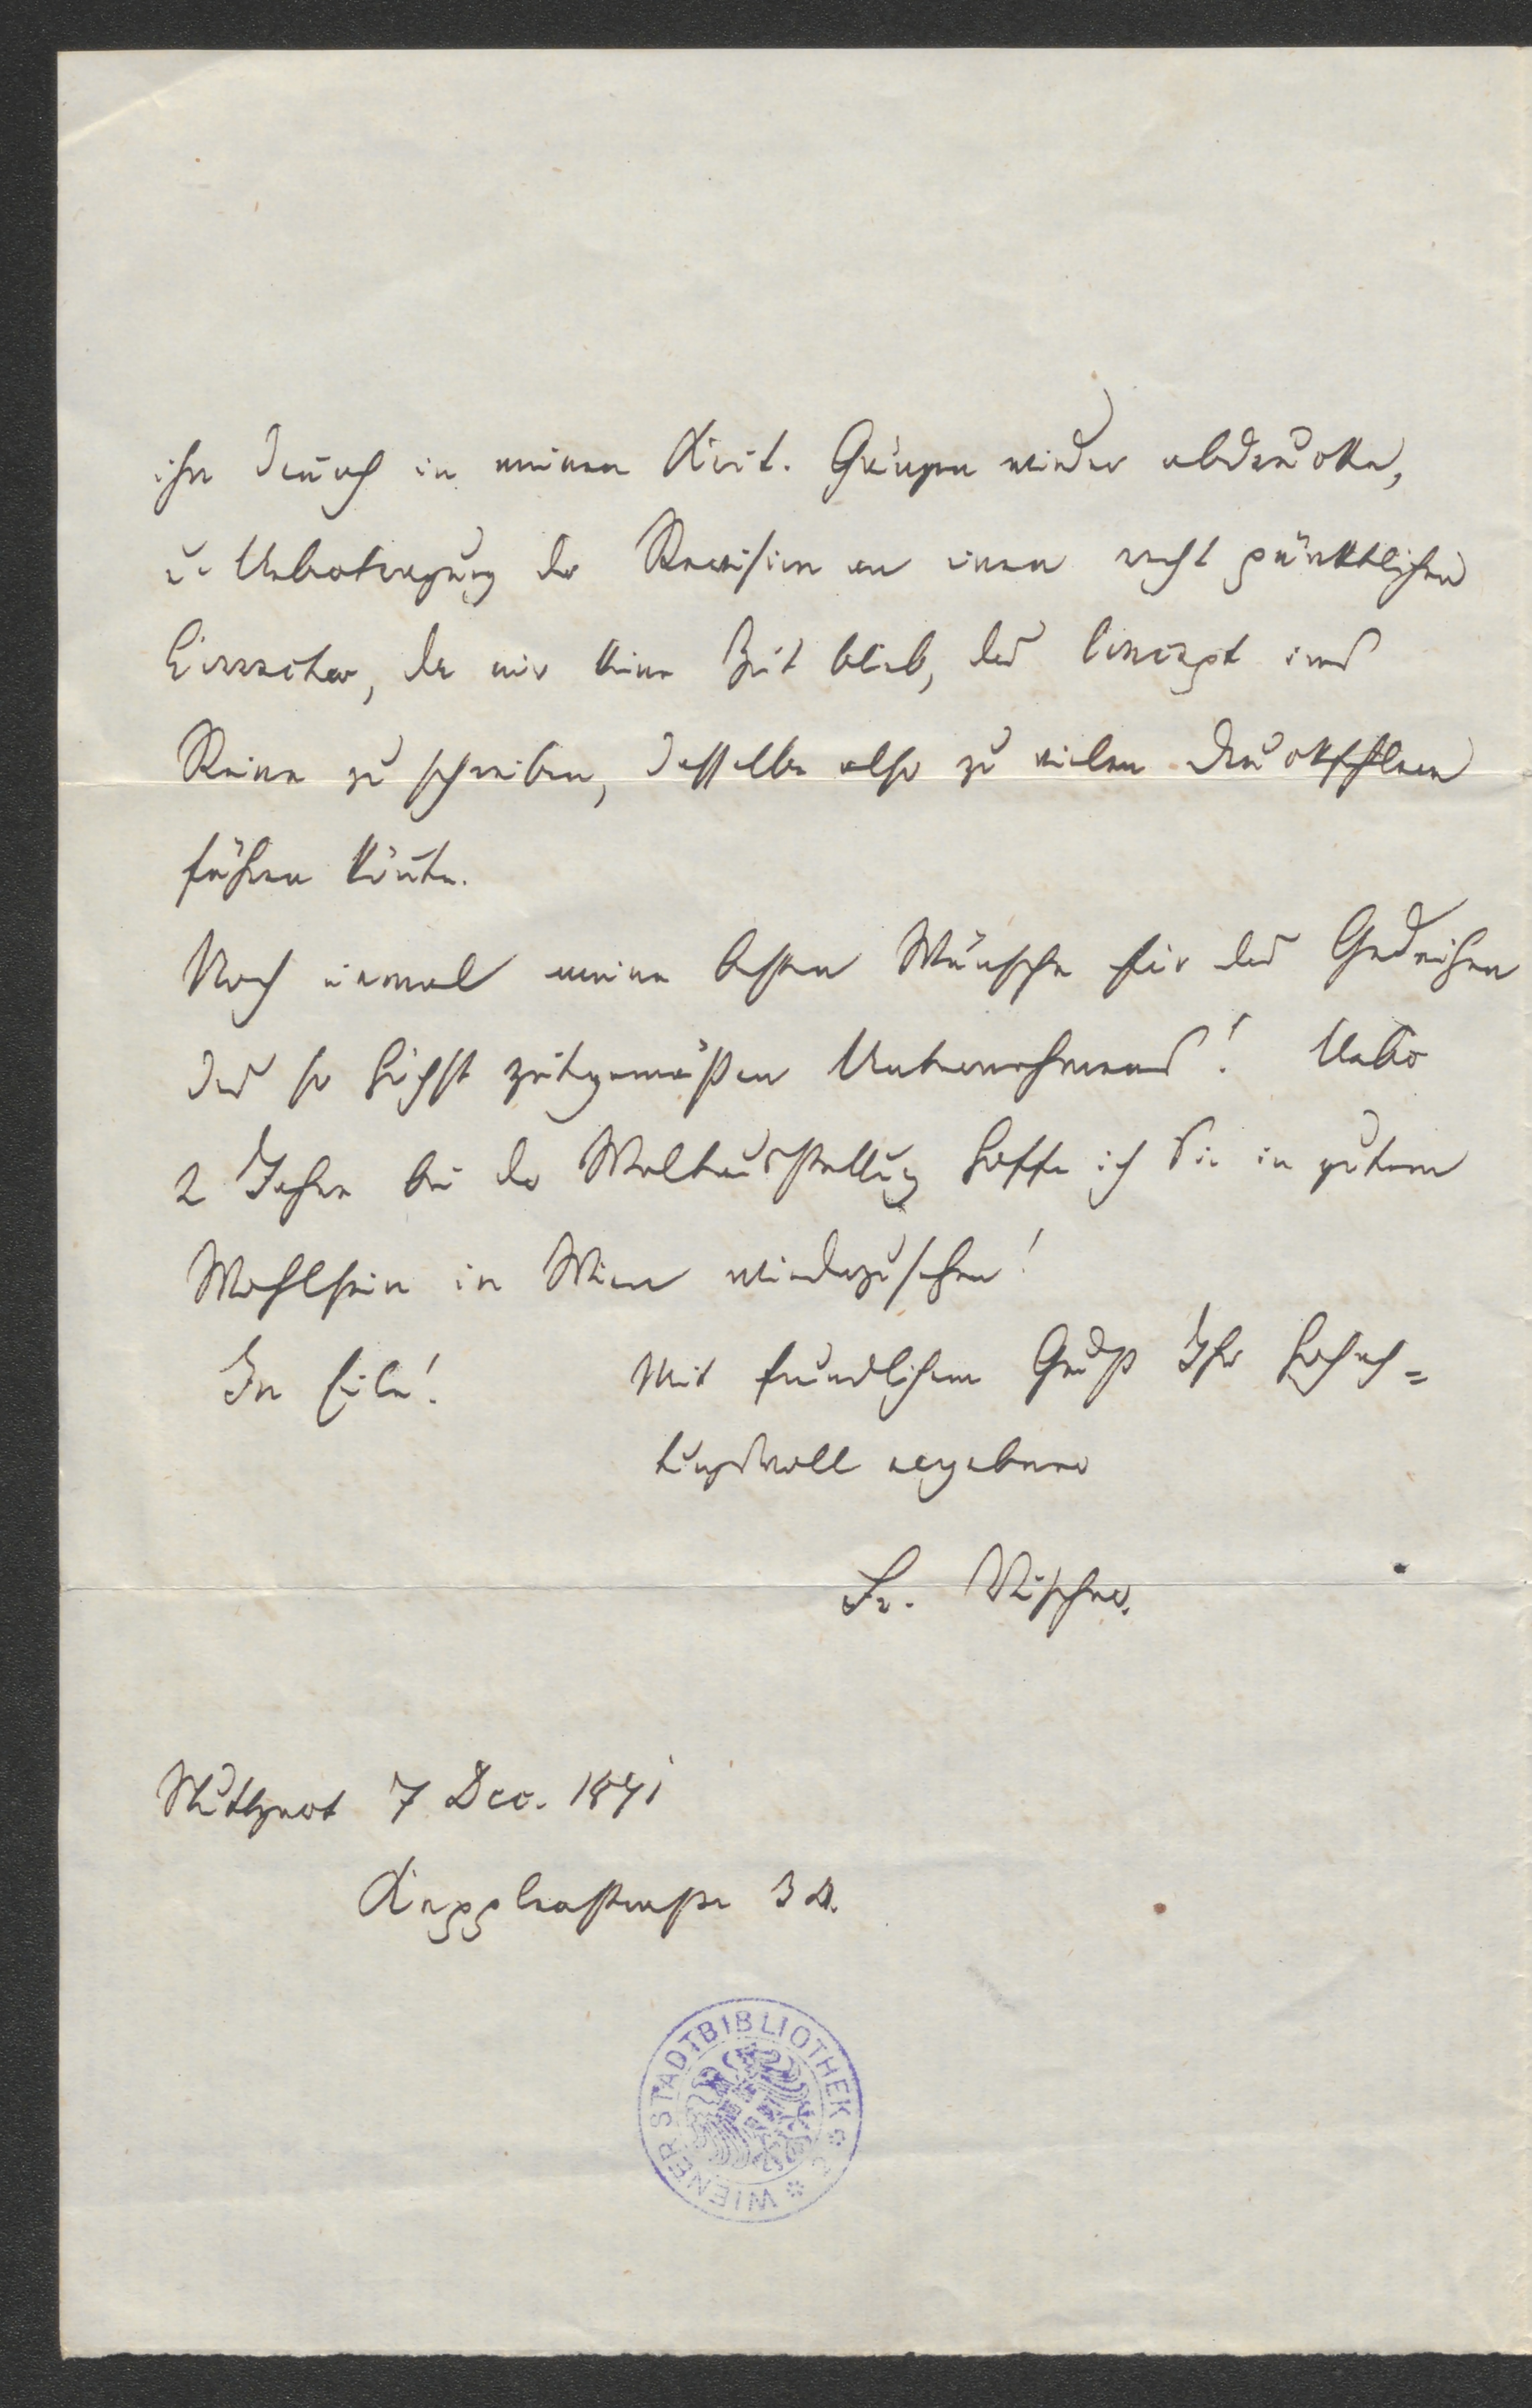 ihn den̄och in meinen Krit. Gängen wieder abdrucken,
u. Uebertragung der Revision an einen recht pünktlichen
Corrector, da mir keine Zeit blieb, das Concept ins
Reine zu schreiben, dasselbe also zu vielen Druckfehlern
führen kön̄te.
Noch einmal meine besten Wünsche für das Gedeihen
des so höchst zeitgemäßen Unternehmens! Ueber
2 Jahre bei der Weltausstellung hoffe ich Sie in gutem
Wohlsein in Wien wiederzusehen!
In Eile! Mit freundlichem Gruß Ihr hochach=
tungsvoll ergebener
Fr. Vischer.
Stuttgart 7 Dec. 1871
Kepplerstraße 34.
WIENER STADTBIBLIOTHEK